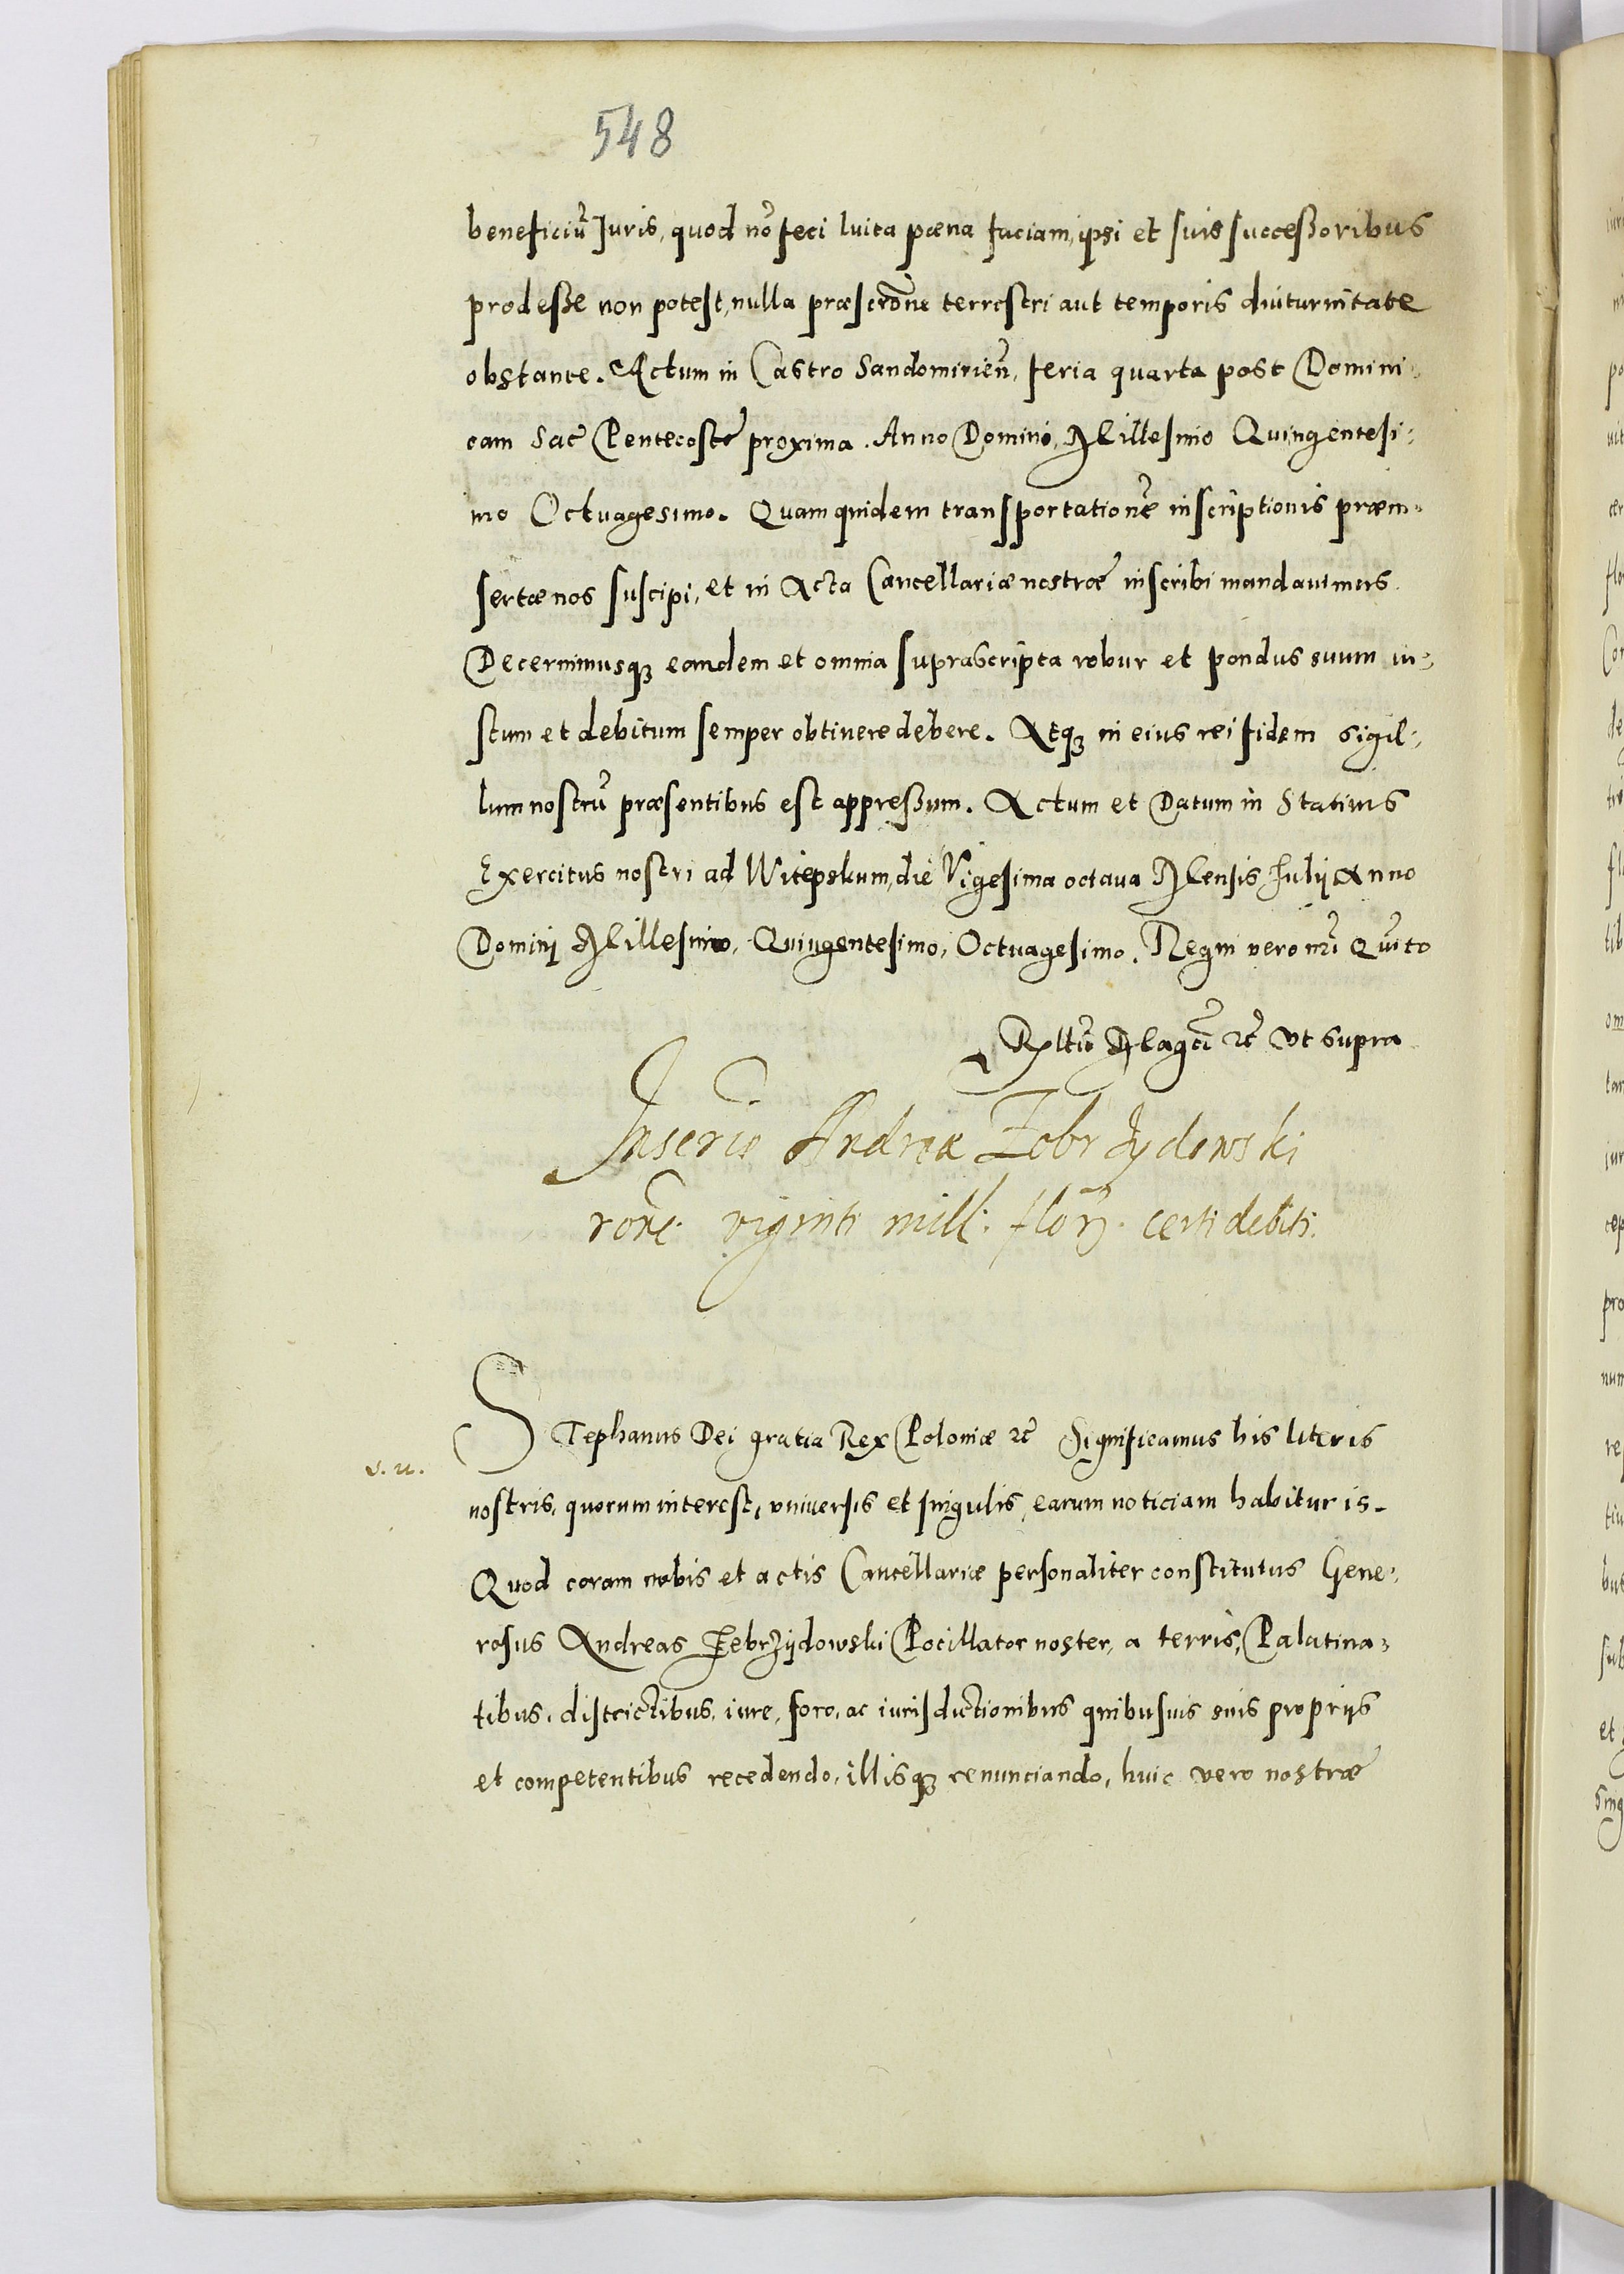 548
beneficiũ Juris, quod nõ feci luita pœna faciam, ipsi et suis successoribus
prodesse non potest, nulla præscrõne terrestri aut temporis diuturnitate
obstante. Actum in Castro Sandomirien̄, feria quarta post Domini-
cam Sac̄ Pentecostẽ proxima. Anno Domini, Millesimo Quingentesi-
mo Octuagesimo. Quam quidem transportationẽ inscriptionis præin-
sertæ nos suscipi, et in Acta Cancellariæ nostræ inscribi mandauimus
Decernimusq; eandem et omnia suprascripta robur et pondus suum iu-
stum et debitum semper obtinere debere. Atq; in eius rei fidem sigil-
lum nostrũ præsentibus est appressum. Actum et Datum in Statiuis
Exercitus nostri ad Witepskum, die Vigesima octaua Mensis Julij Anno
Dominj Millesimo, Quingentesimo, Octuagesimo. Regni vero nr̃i Quito
Rltĩo Magcĩ etc̄ vt supra
Inscrio Andreæ Zebrzydowski
rõne viginti mill: flor̄. certi debiti.
v. u.
STephanus Dei gratia Rex Poloniæ etc̄ Significamus his literis
nostris, quorum interest, vniuersis et singulis, earum noticiam habituris.
Quod coram nobis et actis Cancellariæ personaliter constitutus Gene-
rosus Andreas Zebrzydowski Pocillator noster, a terris, Palatina-
tibus, districtibus, iure, foro, ac iurisdictionibus quibusuis suis proprijs
et competentibus recedendo, illisq; renunciando, huic vero nostræ